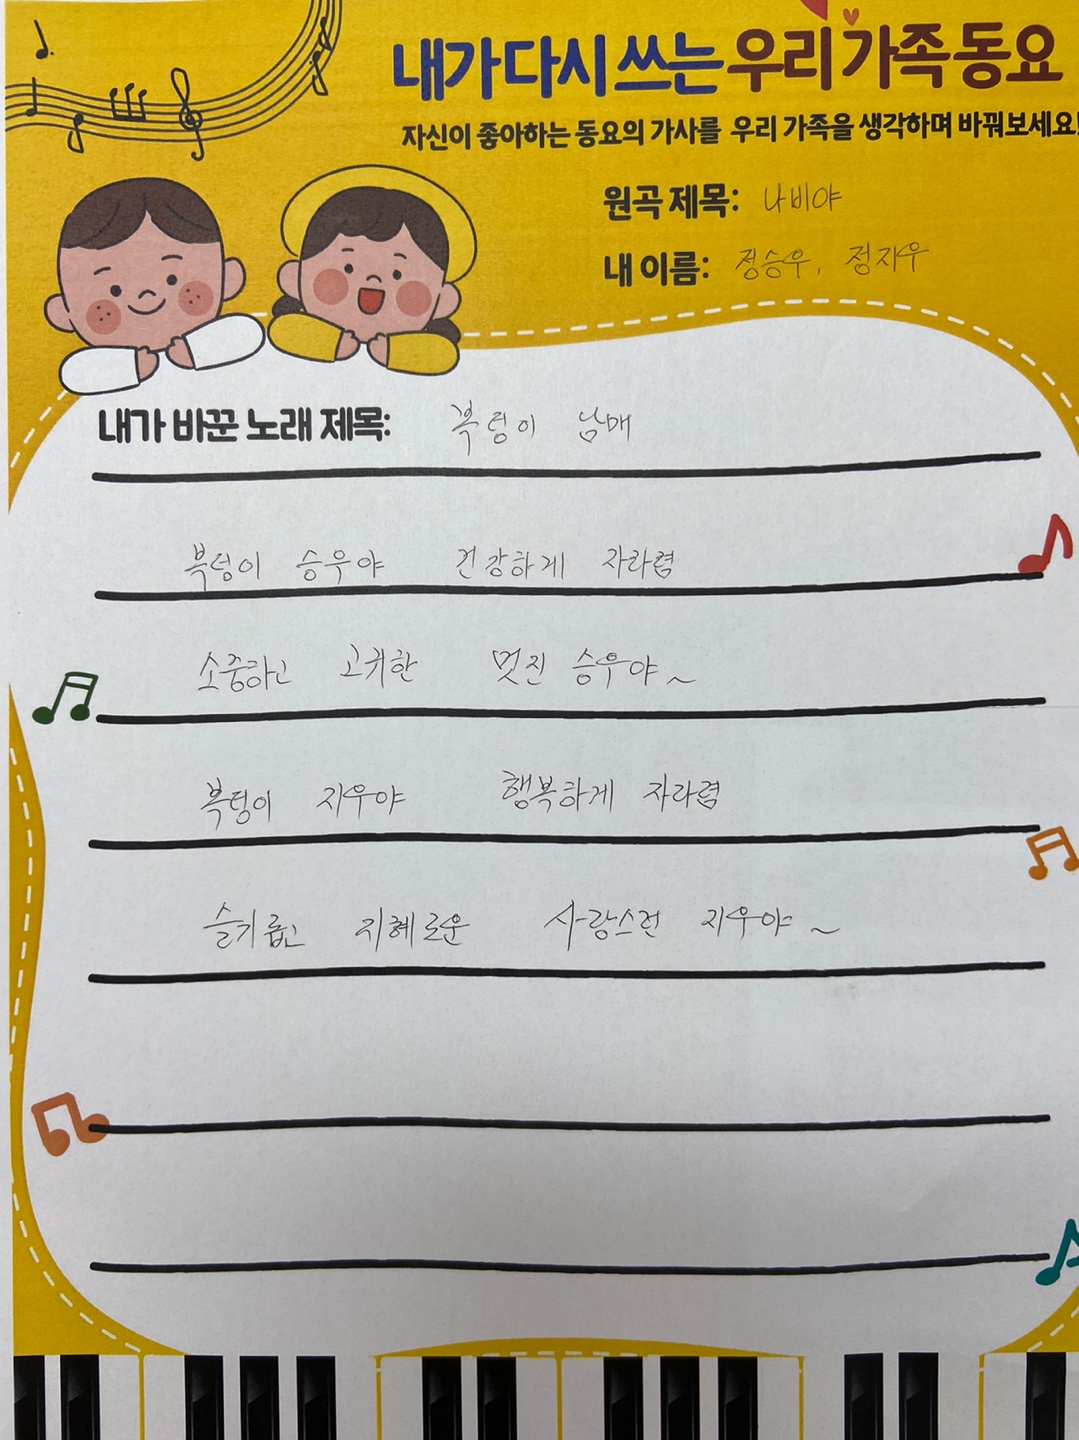 내가 다시 쓰는 우리 가족 동요
자신이 좋아하는 동요의 가사를 우리 가족을 생각하며 바꿔보세요!
원곡 제목: 나비야
내 이름: 정승우, 정지우
내가 바꾼 노래 제목: 복덩이 남매
복덩이 승우야 건강하게 자라렴
소중하고 고귀한 멋진 승우야~
복덩이 지우야 행복하게 자라렴
슬기롭고 지혜로운 사랑스런 지우야~